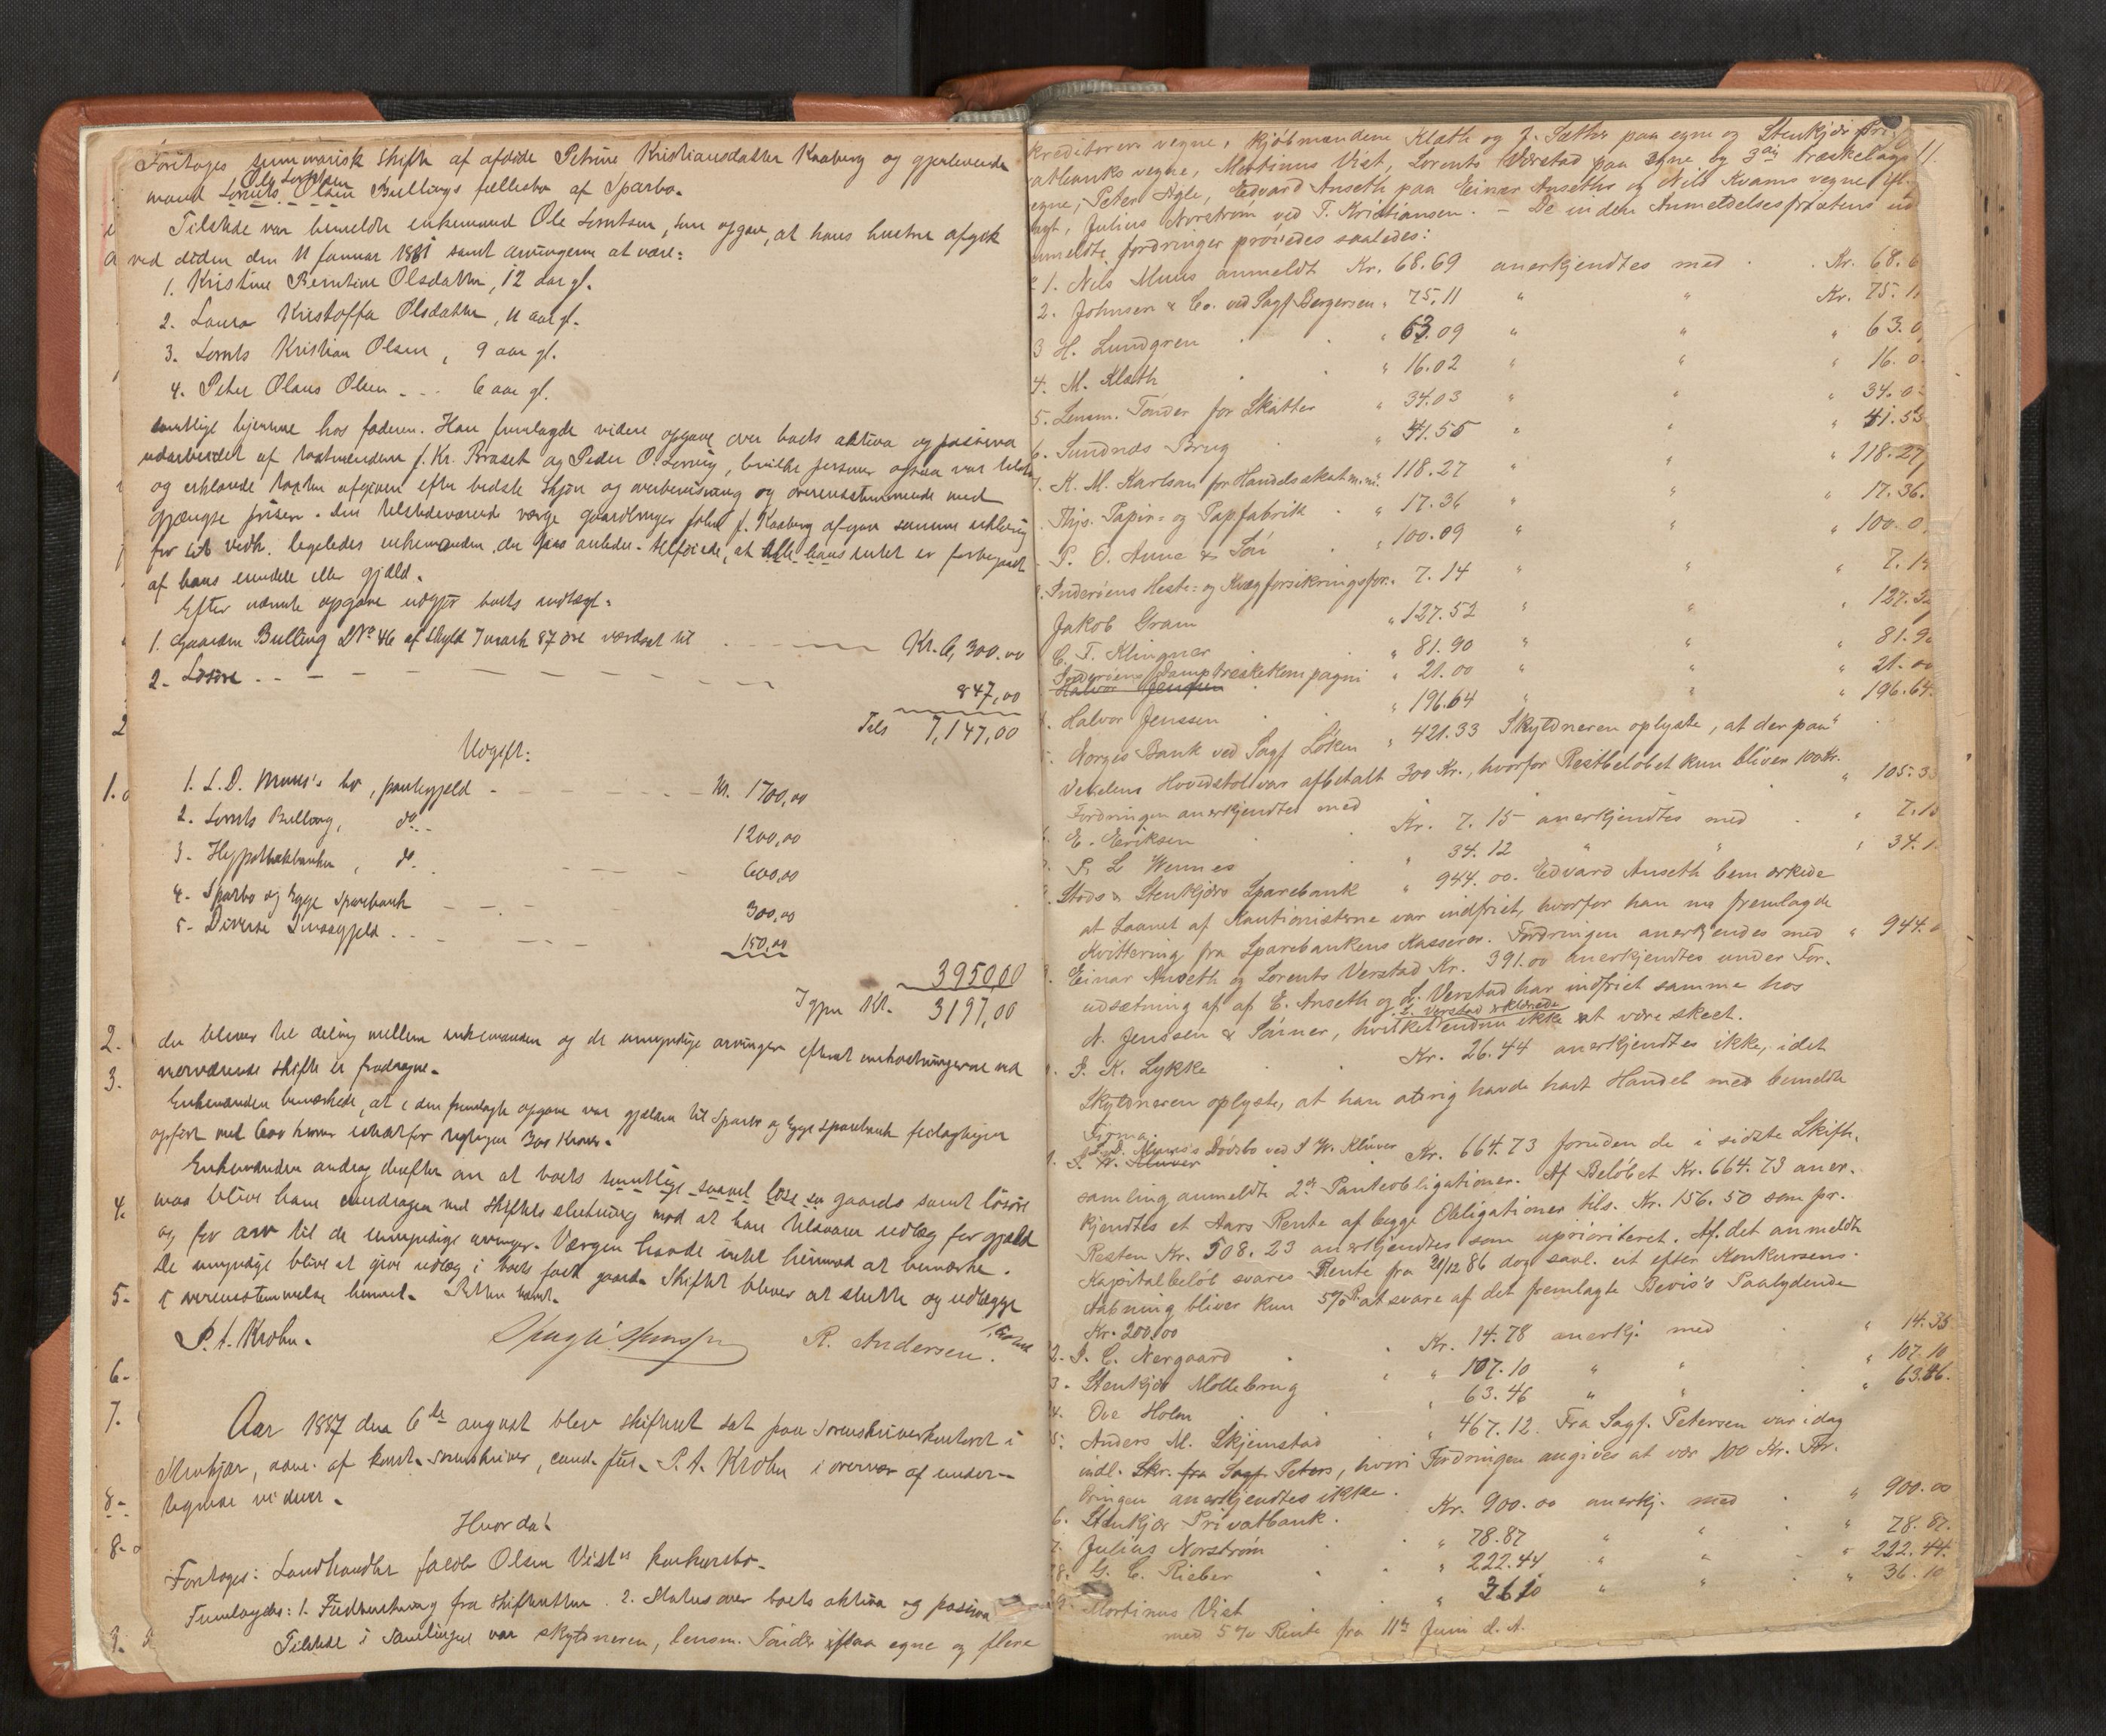 Foretages summarisk skifte af afdøde Petrine Kristiansdatter Kaaberg og gjenlevende
Ole Lorntsen
mand Lornts Olsen Bullings fællesbo af Sparbo.
Tilstede var bemeldte enkemand Ole Lorntsen, som opgav, at hans hustru afgik
ved døden den 11 Januar 1881 samt arvingerne at være:
1. Kristine Berntine Olsdatter, 12 aar gl.
2. Laura Kristoffa Olsdatter, 11 aar gl.
3. Lornts Kristian Olsen, 9 aar gl.
4. Peter Olaus Olsen - - - 6 aar gl.
samtlige hjemme hos faderen. Han fremlagde videre opgave over boets aktiva og passiva
udarbeidet af taxtmændene J. Kr. Braset og Peder O. , hvilke personer ogsaa var tilstede
og erklærede taxten afgiven efter bedste skjøn og overbevisning og overensstemmende med
gjængse priser. Den tilstedeværende værge gaardbruger John J. Kaaberg afgav samme erklæring
for sit vedk. ligeledes enkemanden, der paa anledn. tilføiede, at intet er forbigaaet
af hans eiendele eller gjæld.
Efter nævnte opgave udgjør boets indtægt.
1. Gaarden Bulling LNo 46 af skyld 7 mark 87 øre værdsat til Kr. 6,300.00
2. Løsøre 847,00
Tils 7,147,00
Udgift:
1. L. D. Muus's bo, pantegjæld Kr. 1700,00
2. Lornts Bulling, do 1200,00
3. Hypothekbanken, do. 600,00
4. Sparbo og Egge Sparebank 300,00
5. Diverse gjæld 150,00
3950,00
Igjen Kr. 3197,00
der bliver til deling mellem enkemanden og de umyndige arvinger efterat omkostningerne ved
nærværende skifte er fradragne.
Enkemanden bemærkede, at i den fremlagte opgave var gjælden til Sparbo og Egge sparebank feilagtigen
opført med 600 kroner istedetfor rigtigen 300 Kroner.
Enkemanden androg derefter om at boets samtlige saavel løse so gaards samt løsøre
maa blive ham inddragen ved skiftets slutning mod at han tilsvarer udlæg for gjæld
og for arv til de umyndige arvinger. Værgen havde intet herimod at bemærke.
De umyndige blive at give udlæg i boets faste gaard. Skiftet bliver at slutte og udlægge
i overensstemmelse hermed. Retten hævet.
P. A. Krohn. R. Andersen.
Aar 1887 den 6te august blev skifteret sat paa Sorenskriverkontoret i
Stenkjær, adm. af konst. sorenskriver, cand. jur. P. A. Krohn i overvær af under-
tegnede vidner.
Hvorda!
Foretoges: Landhandler Jacob Olsen Vists konkursbo.
Fremlagdes: 1. fra skifteretten. 2. Status over boets aktiva og passiva
Tilstede i samlingen var skyldneren, lensm. Tønder paa egne og flere
11.
kreditorers vegne, kjøbmændene Klæth og J. Sæther paa egne og Stenkjær Pri-
vatbanks vegne, Martinus Vist, Lorents Verstad paa egne og træskelags
egne, Peter Agle, Edvard Anseth paa Einar Anseths og Nils Kvams vegne
Julius Norstrøm ved T. Kristiansen. - De inden Anmeldelsesfristens ud
anmeldte fordringer prøvedes saaledes:
1. Nils Muus anmeldt Kr. 68.69 anerkjendtes med Kr. 68.6
2. Johnsen & Co. ved Sagf. Bergersen " 75.11 " " Kr. 75.1
3 H. Lundgren " 63.09 " " " 63.0
4. M. Klæth " 16.02 " " " 16.0
5. Lensm. Tønder for Skatter " 34.03 " " " 34.0
6. Sundnæs Brug " 41.55 " " " 41.55
7. K. M. Karlsen for Handelsskat m.m. " 118.27 " " " 118.27
Thjs. Papir- og Papfabrik " 17.36 " " " 17.36.
P. O. Aune & Søn " 100.09 " " " 100.0
Inderøens Heste- og Kvægforsikringsfor. " 7.14 " " " 7.1
Jakob Gram " 127.52 " " " 127.5
C. F. Klingner " 81.90 " " " 81.9
Inderøens Damptreskekompagni " 21.00 " " " 21.00
Halvor Jenssen
Halvor Jenssen " 196.64 " " " 196.64
Norges Bank ved Sagf. Løken " 421.33 Skyldneren oplyste, at der paa
Vexelens Hovedstol var afbetalt 300 Kr., hvorfor Restbeløbet kun bliver 100 Kr.
Fordringen anerkjendtes med " 105.3
E. Eriksen Kr. 7.15 anerkjendtes med " 7.1
P. L. Wennes " 34.12 " " " 34.1
Stods & Stenkjærs Sparebank " 944.00. Edvard Anseth bemærkede
at Laanet af Kautionisterne var indfriet, hvorfor han nu fremlagde
Kvittering fra Sparebankens Kasserer. Fordringen anerkjendes med " 944.
Einar Anseth og Lorents Verstad Kr. 391.00 anerkjendtes under For-
udsætning af at E. Anseth og L. Verstad har indfriet samme hos
L. Verstad erklærede
A. Jenssen & Sønner, hvilket endnu ikke at være skeet.
P. K. Lykke Kr. 26.44 anerkjendtes ikke, idet
Skyldneren oplyste, at han aldrig havde havt Handel med bemeldte
Firma.
L. D. Muus's Dødsbo ved P W. Klüver Kr. 664.73 foruden de i sidste Skifte-
P. W. Klüver
samling anmeldte 2de Panteobligationer. Af Beløbet Kr. 664.73 aner-
kjendtes et Aars Rente af begge Obligationer tils. Kr. 156.50 som pr.
Resten Kr. 508.23 anerkjendtes som uprioriteret. Af det anmeldte
Kapitalbeløb svares Rente fra 31/12 86 dog saal. at efter Konkursens
Aabning bliver kun 5% R. at svare af det fremlagte Bevis's Paalydende
Kr. 200.00
2. P. C. Nergaard Kr. 14.78 anerkj. med " 14.35
3. Stenkjær Møllebrug " 107.10 " " " 107.10
4. Ove Holm " 63.46 " " " 63.46.
5. Anders M. Skjemstad " 467.12. Fra Sagf. Petersen var idag
indl. Skr. fra Sagf. Peters, hvori Fordringen angives at vær 100 Kr. For-
dringen anerkjendtes ikke.
6. Stenkjær Privatbank. Kr. 900.00 anerkj. med " 900.00
7. Julius Norstrøm " 78.87 " " " 78.87.
8. G. C. Rieber " 222.44 " " " 222.44.
9. Martinus Vist " 36.10 " " " 36.10
med 5% Rente fra 11te Juni d. A.